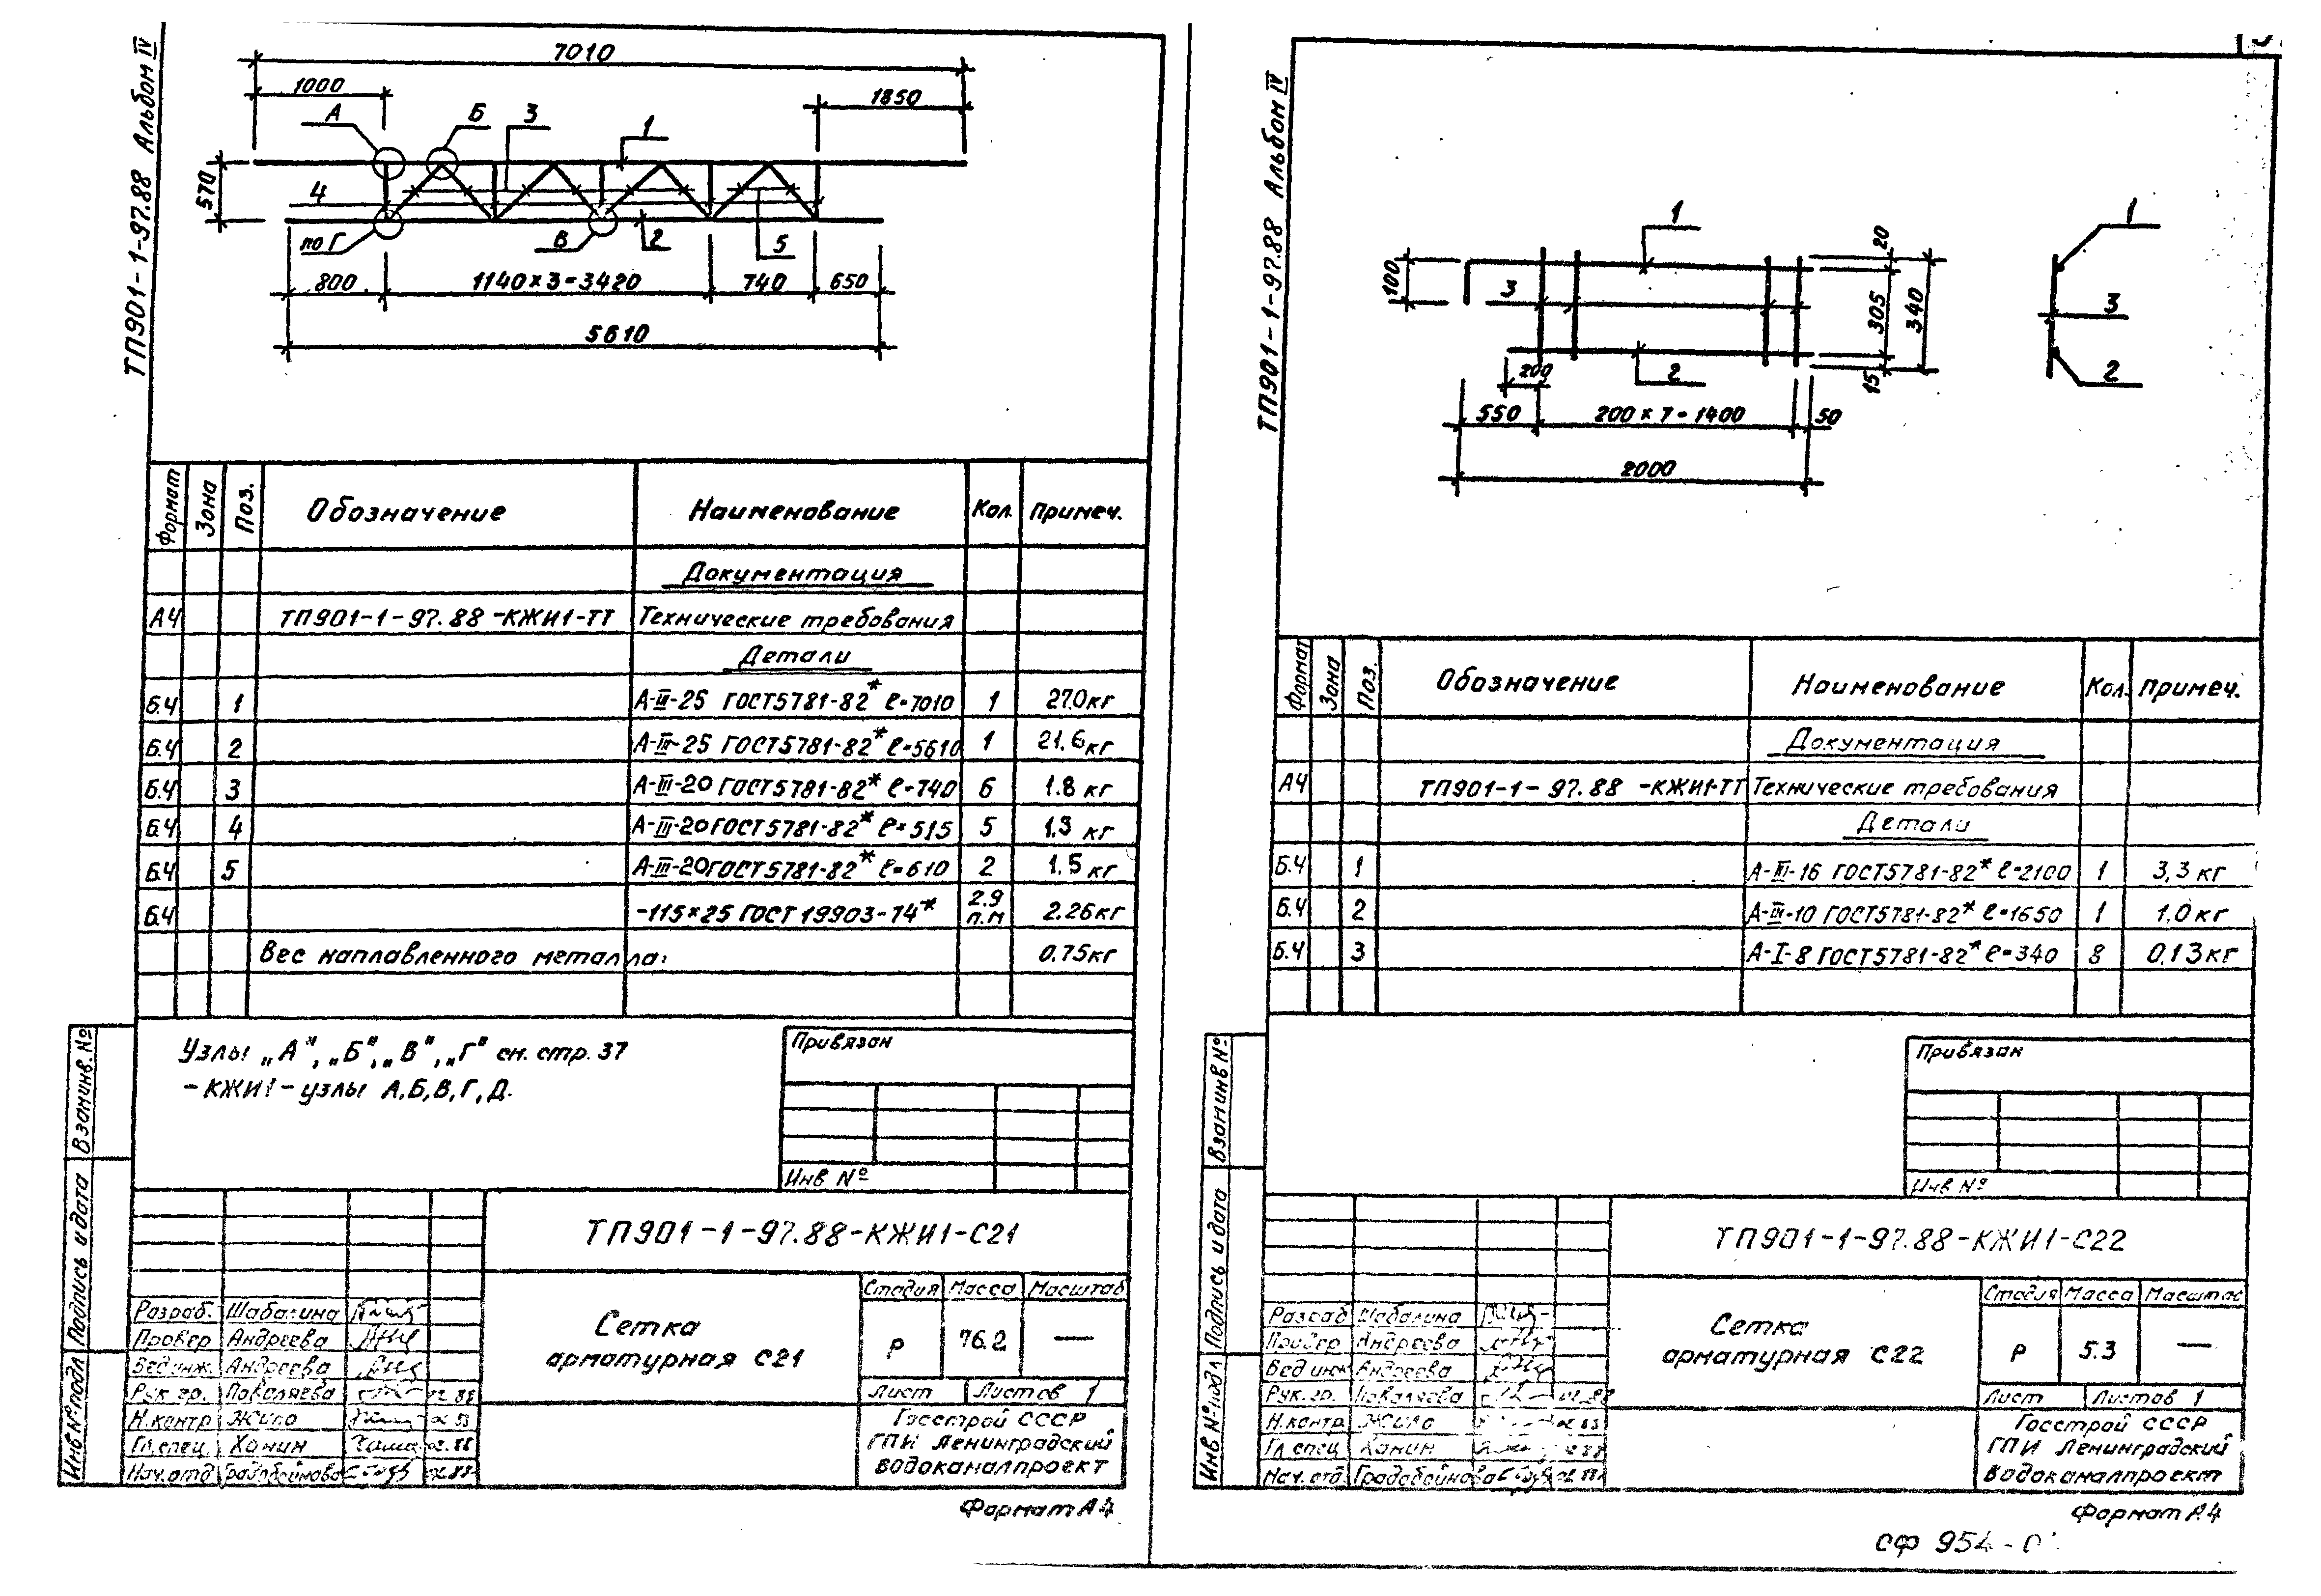 ТП901-1-97.88 Альбом IV
7010
1000
1850
А
Б
3
1
570
4
по Г
В
2
5
800
1140×3=3420
740
650
5610
Формат Зона Поз. Обозначение Наименование Кол. Примеч.
Документация
А4 ТП901-1-97.88-КЖИ1-ТТ Технические требования
Детали
Б.Ч 1 А-III-25 ГОСТ5781-82* ℓ=7010 1 27.0кг
Б.Ч 2 А-III-25 ГОСТ5781-82* ℓ=5610 1 21.6кг
Б.Ч 3 А-III-20 ГОСТ5781-82* ℓ=740 6 1.8 кг
Б.Ч 4 А-III-20 ГОСТ5781-82* ℓ=515 5 1.3 кг
Б.Ч 5 А-III-20 ГОСТ5781-82* ℓ=610 2 1.5 кг
Б.Ч -115×25 ГОСТ 19903-74* 2.9 п.м 2.26кг
Вес наплавленного металла: 0.75кг
Узлы „А", „Б", „В", „Г" см. стр. 37
-КЖИ1- узлы А,Б,В,Г,Д.
Привязан
Инв №
Взам инв. №
Подпись и дата
Инв № подл
ТП901-1-97.88-КЖИ1-С21
Сетка
арматурная С21
Стадия Масса Масштаб
р 76.2 —
Лист Листов 1
Госстрой СССР
ГПИ Ленинградский
Водоканалпроект
Разраб. Шабалина
Провер Андреева
Вед инж. Андреева
Рук. гр. Поваляева
Н.контр Жило
Гл.спец. Ханин
Нач.отд Градобойнова
Формат А4
ТП901-1-97.88 Альбом IV
1
100
3
20
305
340
15
2
200
550
200 × 7 = 1400
50
2000
1
3
2
Формат Зона Поз. Обозначение Наименование Кол. Примеч.
Документация
А4 ТП901-1-97.88 -КЖИ1-ТТ Технические требования
Детали
Б.Ч 1 А-III-16 ГОСТ5781-82* ℓ=2100 1 3,3 кг
Б.Ч 2 А-III-10 ГОСТ5781-82* ℓ=1650 1 1,0 кг
Б.Ч 3 А-I-8 ГОСТ5781-82* ℓ=340 8 0,13 кг
Привязан
Инв №
Взам инв №
Подпись и дата
Инв № подл
ТП901-1-97.88-КЖИ1-С22
Сетка
арматурная С22
Стадия Масса Масштаб
р 5.3 —
Лист Листов 1
Госстрой СССР
ГПИ Ленинградский
Водоканалпроект
Разраб Шабалина
Провер Андреева
Вед инж Андреева
Рук. гр. Поваляева
Н.контр Жило
Гл.спец Ханин
Нач. отд. Градобойнова
Формат А4
СФ 954-0